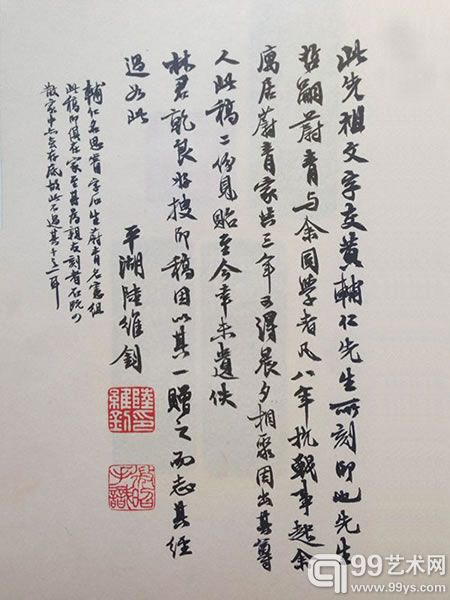 此先祖文字交黃輔仁先生所刻印也先生
哲嗣蔚青與余同學者凡八年抗戰事起余
寓居蔚青家三年又得晨夕相聚因出其尊
人此稿二份見貽至今幸未遺佚
林君乾良好搜印稿因以其一贈之而志其經
過如此
平湖陸維釗
輔仁名思字石生蔚青名憲組
此稿印俱在家至親友刻者石既
散家中亦無存底故此不過其十之一耳
陸印維釗
99艺术网
www.99ys.com